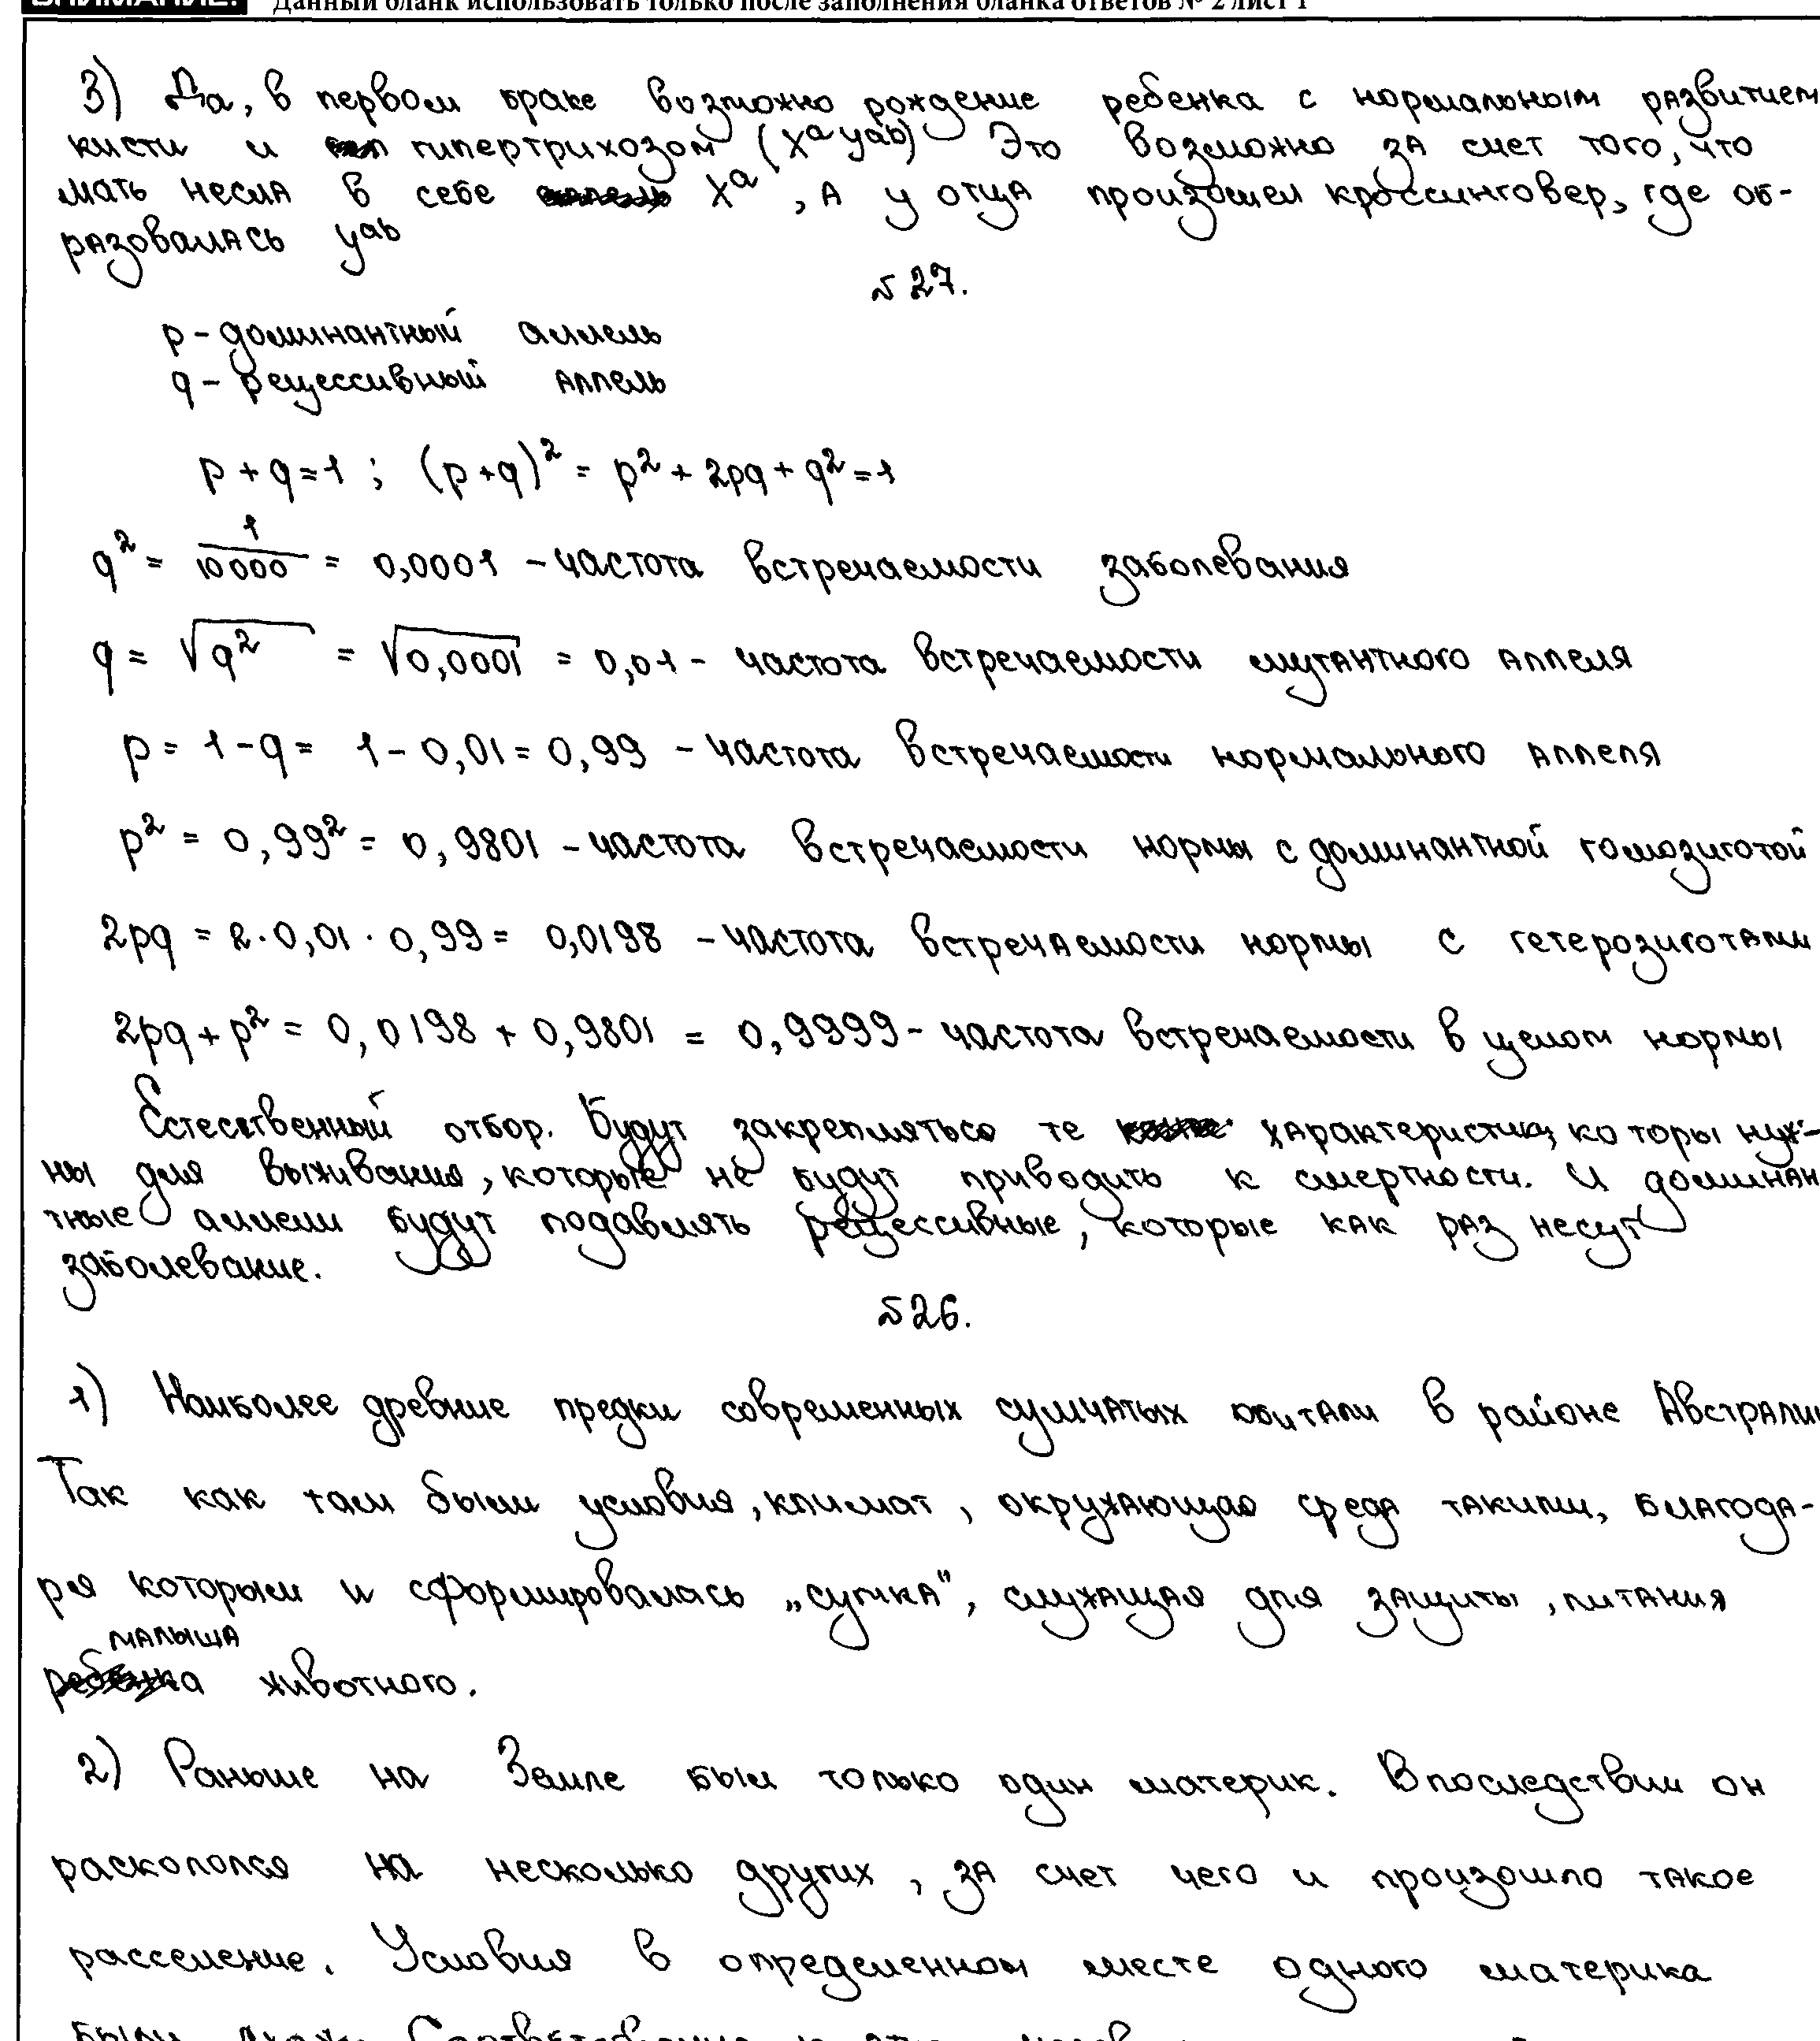 ВНИМАНИЕ! Данный бланк использовать только после заполнения бланка ответов № 2 лист 1
3) Да, в первом браке возможно рождение ребенка с нормальным развитием
кисти и гипертрихозом (X^a y^ab) Это возможно за счет того, что
мать несла в себе X^a, а у отца произошел кроссинговер, где об-
разовалась y^ab
№ 27.
p - доминантный аллель
q - рецессивный аллель
p + q = 1 ; (p + q)² = p² + 2pq + q² = 1
q² = 1/10000 = 0,0001 - частота встречаемости заболевания
q = √q² = √0,0001 = 0,01 - частота встречаемости мутантного аллеля
p = 1 - q = 1 - 0,01 = 0,99 - частота встречаемости нормального аллеля
p² = 0,99² = 0,9801 - частота встречаемости нормы с доминантной гомозиготой
2pq = 2 · 0,01 · 0,99 = 0,0198 - частота встречаемости нормы с гетерозиготами
2pq + p² = 0,0198 + 0,9801 = 0,9999 - частота встречаемости в целом нормы
Естественный отбор. Будут закрепляться те характеристики, которы нуж-
ны для выживания, которые не будут приводить к смертности. И доминан
тные аллели будут подавлять рецессивные, которые как раз несут
заболевание.
№ 26.
1) Наиболее древние предки современных сумчатых обитали в районе Австралии
Так как там были условия, климат, окружающая среда такими, благода-
ря которым и сформировалась „сумка", служащая для защиты, питания
малыша
животного.
2) Раньше на Земле был только один материк. Впоследствии он
раскололся на несколько других, за счет чего и произошло такое
расселение. Условия в определенном месте одного материка
были